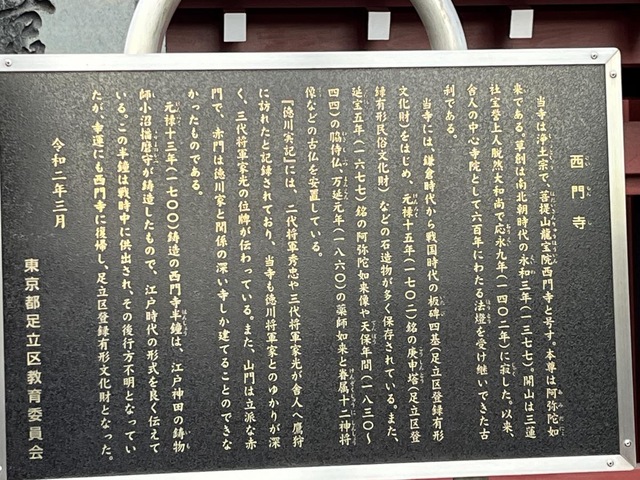 西門寺
当寺は浄土宗で、菩提山龍宝院西門寺と号す。本尊は阿弥陀如
来である。草創は南北朝時代の永和三年(一三七七)。開山は三蓮
社宝誉上人脱然大和尚で応永九年(一四〇二年)に寂した。以来、
舎人の中心寺院として六百年にわたる法燈を受け継いできた古
刹である。
当寺には、鎌倉時代から戦国時代の板碑四基(足立区登録有形
文化財)をはじめ、元禄十五年(一七〇二)銘の庚申塔(足立区登
録有形民俗文化財)などの石造物が多く保存されている。また、
延宝五年(一六七七)銘の阿弥陀如来像や天保年間(一八三〇〜
四四)の脇侍仏、万延元年(一八六〇)の薬師如来と眷属十二神将
像などの古仏を安置している。
『徳川実記』には、二代将軍秀忠や三代将軍家光が舎人へ鷹狩
に訪れたと記録されており、当寺も徳川将軍家とのゆかりが深
く、三代将軍家光の位牌が伝わっている。また、山門は立派な赤
門で、赤門は徳川家と関係の深い寺しか建てることのできな
かったものである。
元禄十三年(一七〇〇)鋳造の西門寺半鐘は、江戸神田の鋳物
師小沼播磨守が鋳造したもので、江戸時代の形式を良く伝えて
いる。この半鐘は戦時中に供出され、その後行方不明となってい
たが、幸運にも西門寺に復帰し、足立区登録有形文化財となった。
令和二年三月
東京都足立区教育委員会